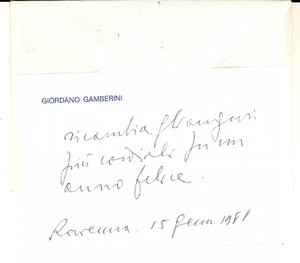 GIORDANO GAMBERINI
ricambia gli auguri
più cordiali per un
anno felice.
Ravenna. 15 genn 1981